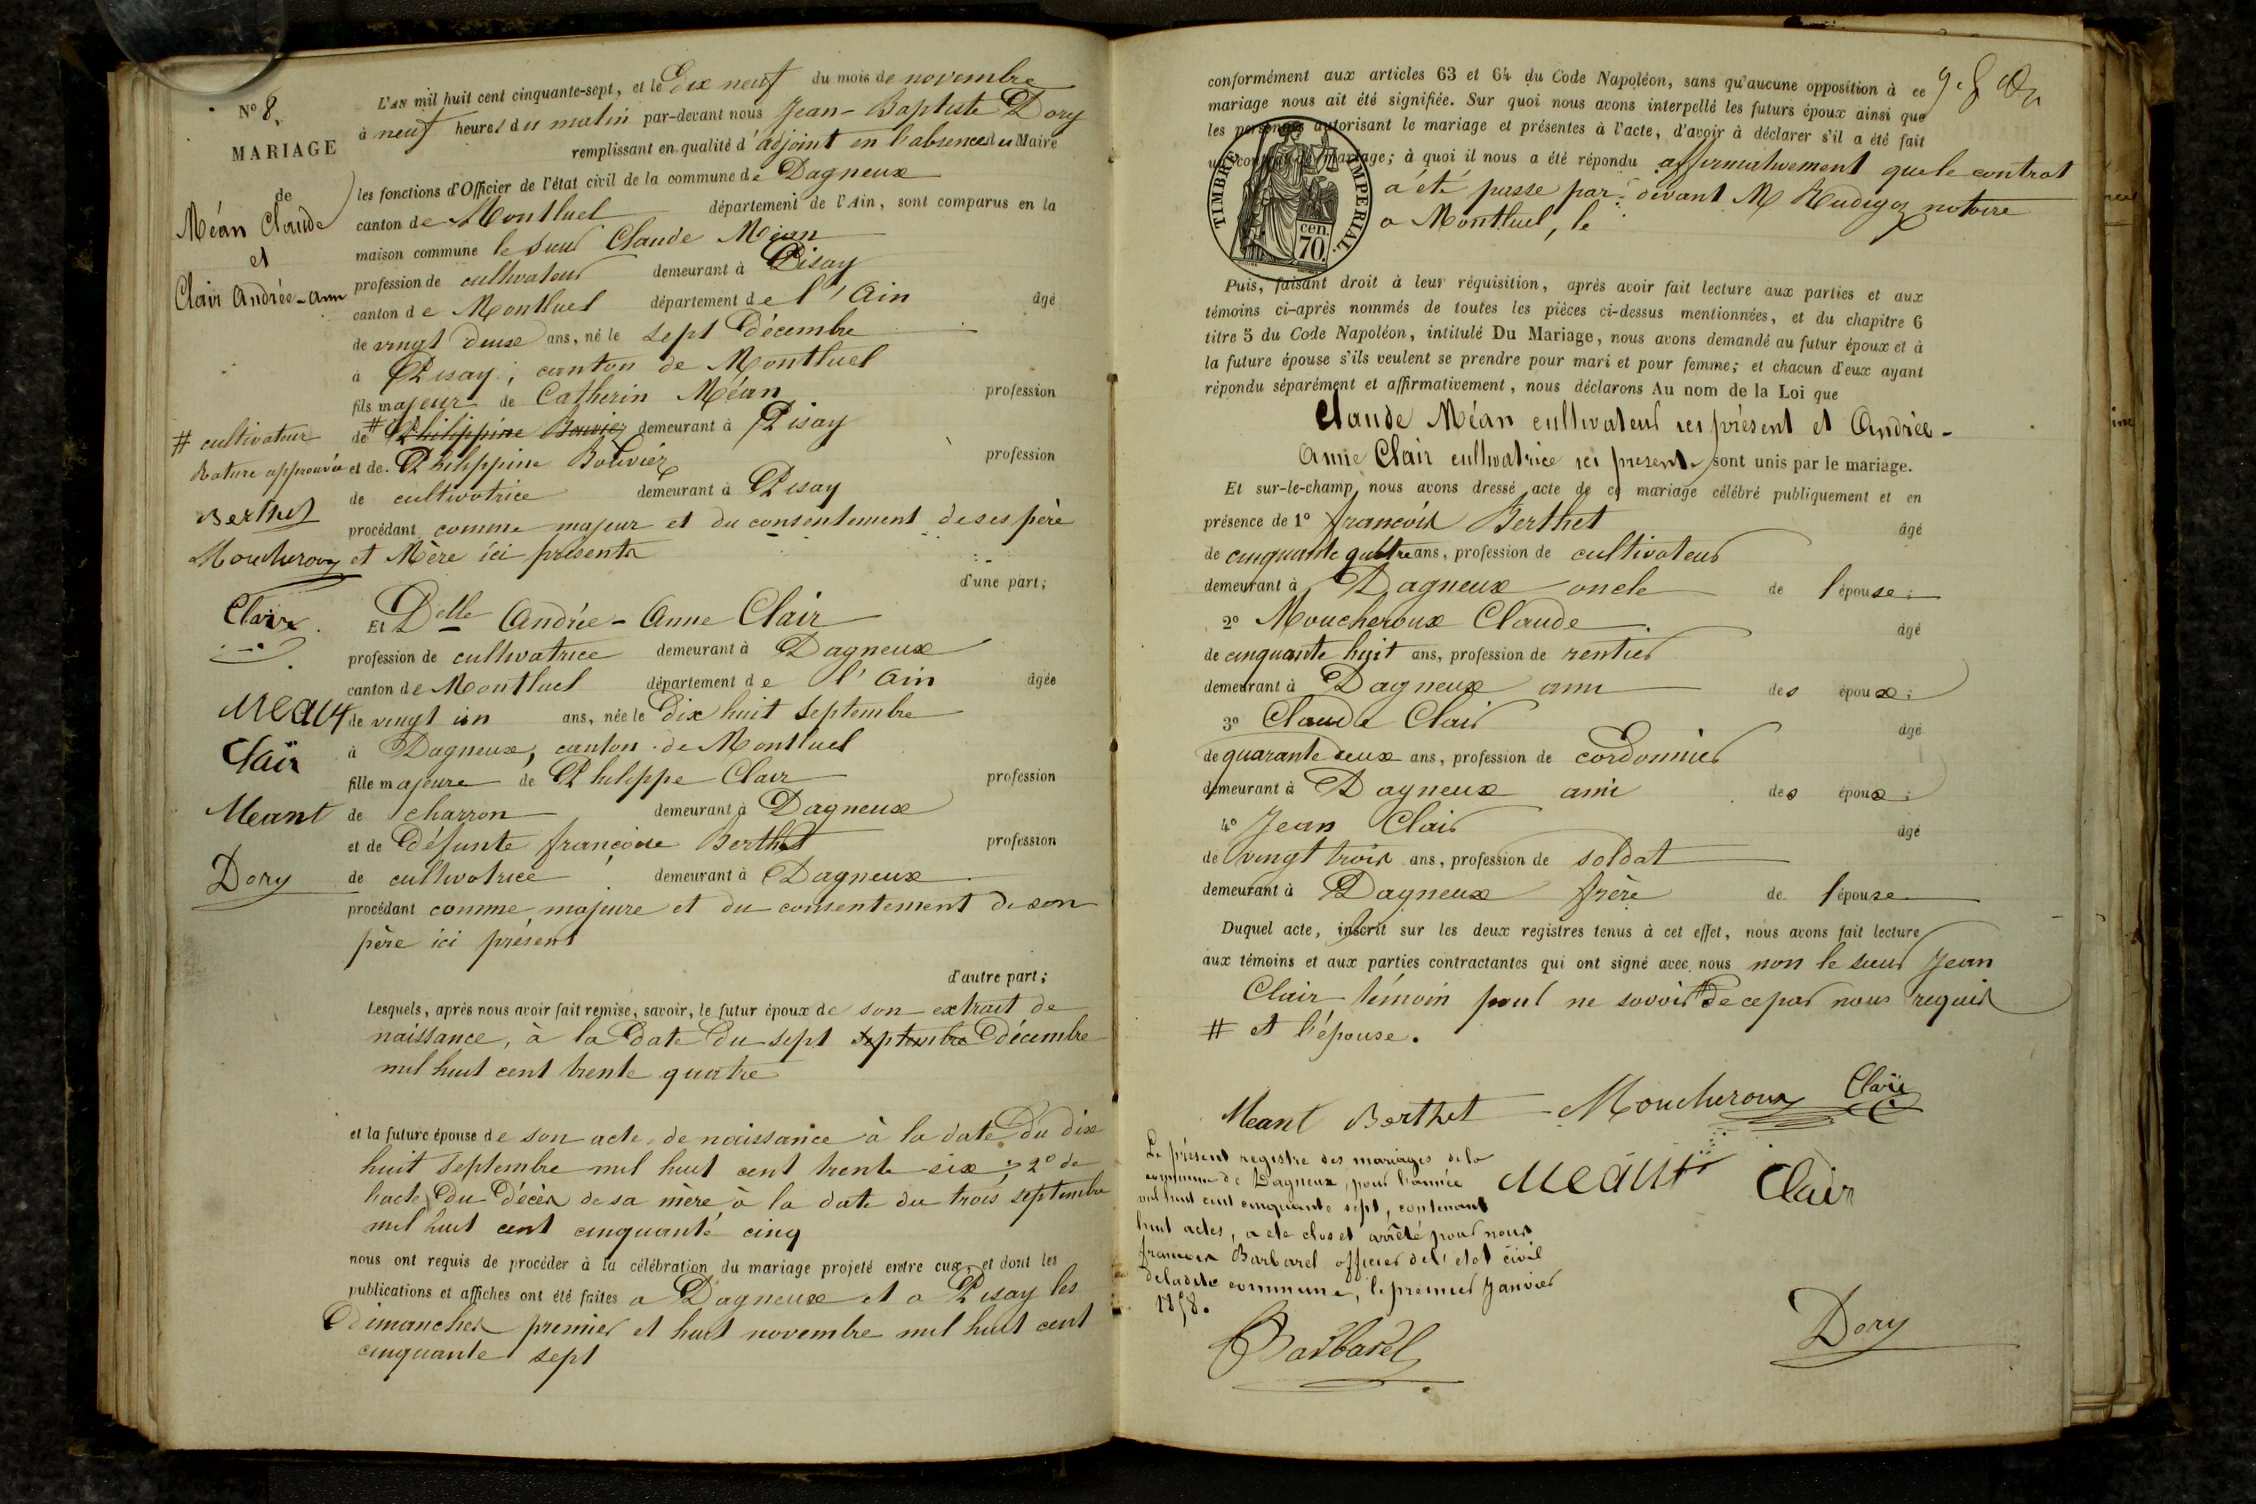 N° 8.
MARIAGE
de
Méan Claude
et
Clair Andrée-Ann
L'AN mil huit cent cinquante-sept, et le Dix neuf du mois de novembre
à neuf heures du matin par-devant nous Jean-Baptiste Dory
remplissant en qualité d'adjoint en l'absence du Maire
les fonctions d'Officier de l'état civil de la commune de Dagneux
canton de Montluel département de l'Ain, sont comparus en la
maison commune le sieur Claude Méan
profession de cultivateur demeurant à Pisay
canton de Montluel département de l'Ain âgé
de vingt deux ans, né le sept Décembre
à Pisay, canton de Montluel
fils majeur de Catherin Méan profession
de # Philippine Bouvier demeurant à Pisay
# cultivateur
Rature approuvée
et de Philippine Bouvier profession
de cultivatrice demeurant à Pisay
Berthet
procédant comme majeur et du consentement de ses père
Moucheroux
et Mère ici présents
d'une part;
Clair
Et Delle Andrée-Anne Clair
profession de cultivatrice demeurant à Dagneux
canton de Montluel département de l'Ain âgée
Meant
de vingt un ans, née le Dix huit septembre
à Dagneux, canton de Montluel
Clair
fille majeure de Philippe Clair profession
Meant
de charron demeurant à Dagneux
et de Défunte françoise Berthet profession
Dory
de cultivatrice demeurant à Dagneux
procédant comme majeure et du consentement de son
père ici présent
d'autre part;
Lesquels, après nous avoir fait remise, savoir, le futur époux de son extrait de
naissance, à la Date Du sept septembre Décembre
mil huit cent trente quatre
et la future épouse de son acte de naissance à la date Du dix
huit septembre mil huit cent trente six ; 2° de
l'acte Du Décès de sa mère à la date du trois septembre
mil huit cent cinquante cinq
nous ont requis de procéder à la célébration du mariage projeté entre eux, et dont les
publications et affiches ont été faites a Dagneux et a Pisay les
Dimanches premier et huit novembre mil huit cent
cinquante sept
conformément aux articles 63 et 64 du Code Napoléon, sans qu'aucune opposition à ce
mariage nous ait été signifiée. Sur quoi nous avons interpellé les futurs époux ainsi que
les personnes autorisant le mariage et présentes à l'acte, d'avoir à déclarer s'il a été fait
un contrat de mariage; à quoi il nous a été répondu affirmativement que le contrat
a été passé par devant M Rudigoz notaire
a Montluel, le
TIMBRE IMPERIAL.
cen.
70.
Puis, faisant droit à leur réquisition, après avoir fait lecture aux parties et aux
témoins ci-après nommés de toutes les pièces ci-dessus mentionnées, et du chapitre 6
titre 5 du Code Napoléon, intitulé Du Mariage, nous avons demandé au futur époux et à
la future épouse s'ils veulent se prendre pour mari et pour femme; et chacun d'eux ayant
répondu séparément et affirmativement, nous déclarons Au nom de la Loi que
Claude Méan cultivateur ici présent et Andrée-
Anne Clair cultivatrice ici présente sont unis par le mariage.
Et sur-le-champ nous avons dressé acte de ce mariage célébré publiquement et en
présence de 1° françois Berthet âgé
de cinquante quatre ans, profession de cultivateur
demeurant à Dagneux oncle de l'épouse;
2° Moucheroux Claude âgé
de cinquante huit ans, profession de rentier
demeurant à Dagneux ami des époux;
3° Claude Clair âgé
de quarante deux ans, profession de cordonnier
demeurant à Dagneux ami des époux;
4° Jean Clair âgé
de vingt trois ans, profession de soldat
demeurant à Dagneux frère de l'épouse
Duquel acte, inscrit sur les deux registres tenus à cet effet, nous avons fait lecture
aux témoins et aux parties contractantes qui ont signé avec nous non le sieur Jean
Clair témoin pour ne savoir # De ce par nous requis
# et l'épouse.
Meant Berthet Moucheroux Clair
Meant Clair
Le présent registre des mariages de la
commune de Dagneux pour l'année
mil huit cent cinquante sept, contenant
huit actes, a été clos et arrêté par nous
francois Barbarel officier de l'état civil
de ladite commune, le premier Janvier
1858.
Barbarel
Dory